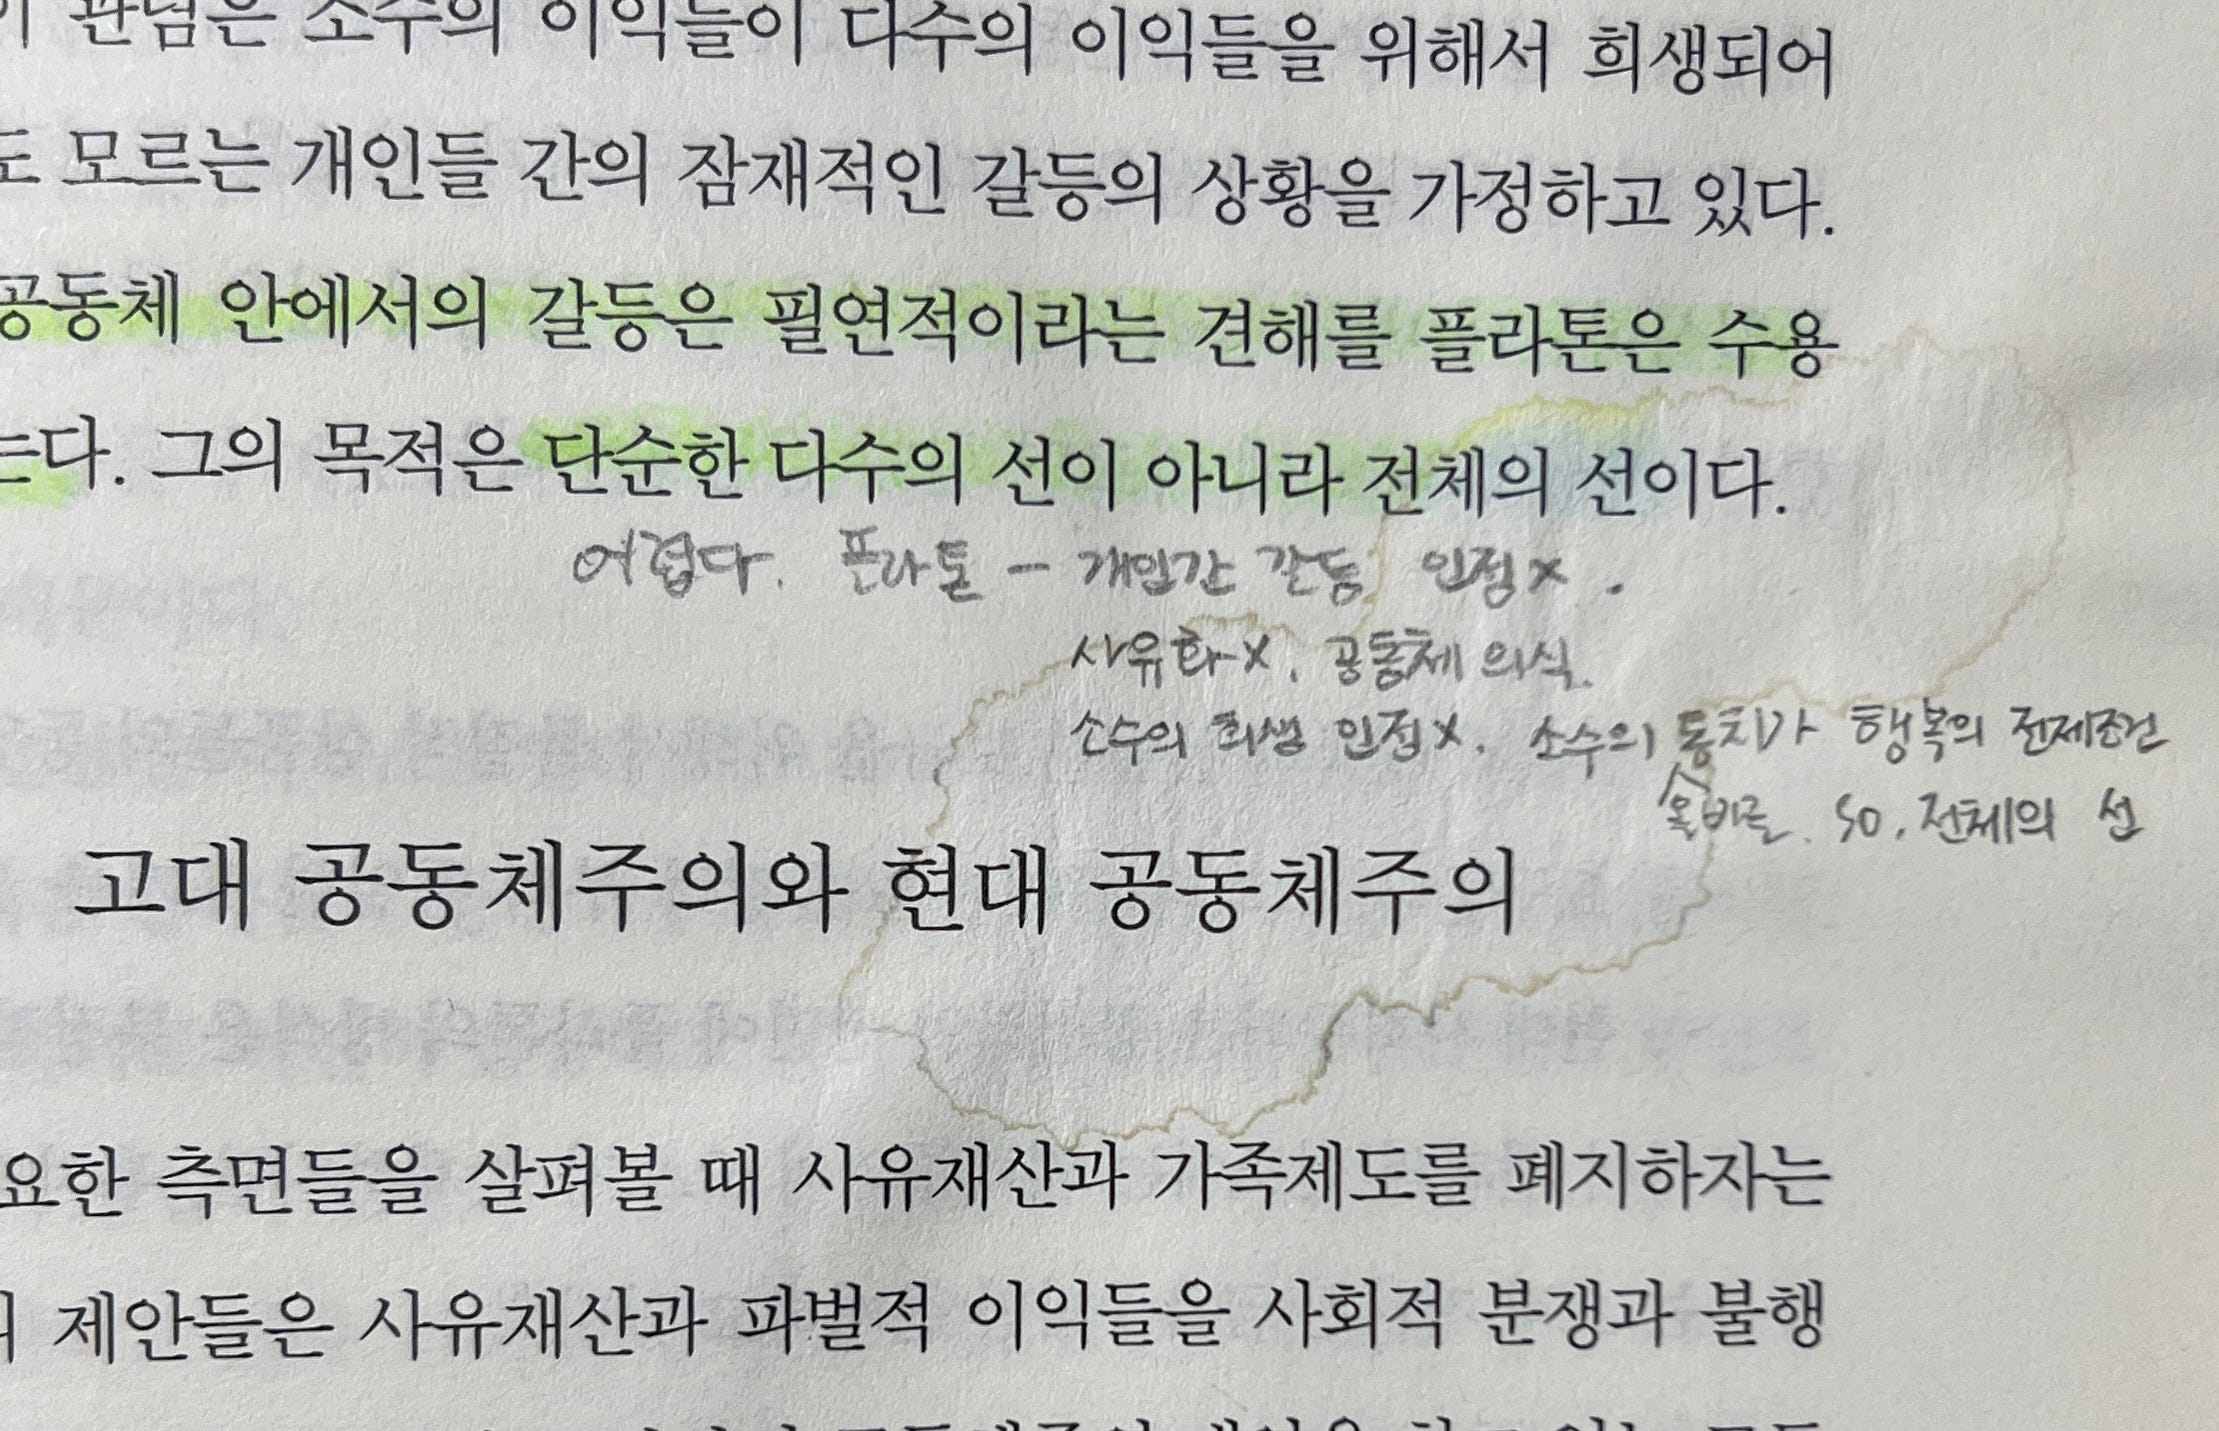 관념은 소수의 이익들이 다수의 이익들을 위해서 희생되어
도 모르는 개인들 간의 잠재적인 갈등의 상황을 가정하고 있다.
공동체 안에서의 갈등은 필연적이라는 견해를 플라톤은 수용
다. 그의 목적은 단순한 다수의 선이 아니라 전체의 선이다.
어렵다. 플라톤 - 개인간 갈등 인정x.
사유화x. 공동체 의식.
소수의 희생 인정x. 소수의 통치가 행복의 전제조건
올바른. so. 전체의 선
고대 공동체주의와 현대 공동체주의
요한 측면들을 살펴볼 때 사유재산과 가족제도를 폐지하자는
제안들은 사유재산과 파벌적 이익들을 사회적 분쟁과 불행